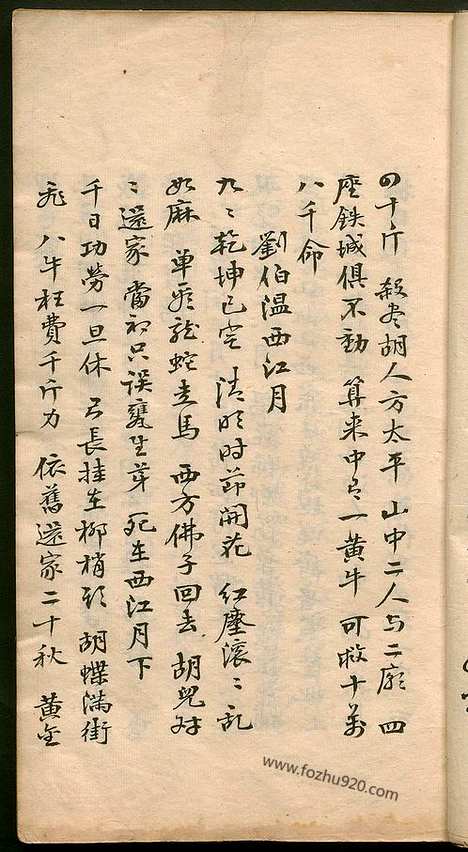 の十斤 殺尽胡人方太平 山中二人与二廟 四
座鉄城俱不動 算来中了一黄牛 可救十萬
八千命
劉伯温西江月
九〻乾坤已定 清明时節開花 红塵滚〻乱
如麻 单騎龍蛇走馬 西方佛子回去 胡兒
〻還家 當初只誤甕生芽 死在西江月下
千日功勞一旦休 弓長挂在柳梢頭 胡蝶满街
飛 八牛枉費千斤力 依舊還家二十秋 黄金
www.fozhu920.com